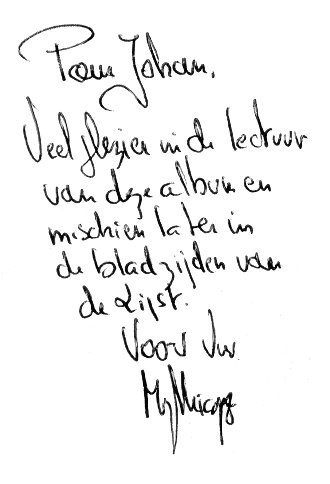 Pour Johan,
Veel plezier in de lectuur
van deze album en
mischien later in
de bladzijden van
de Lijst.
Voor Uw